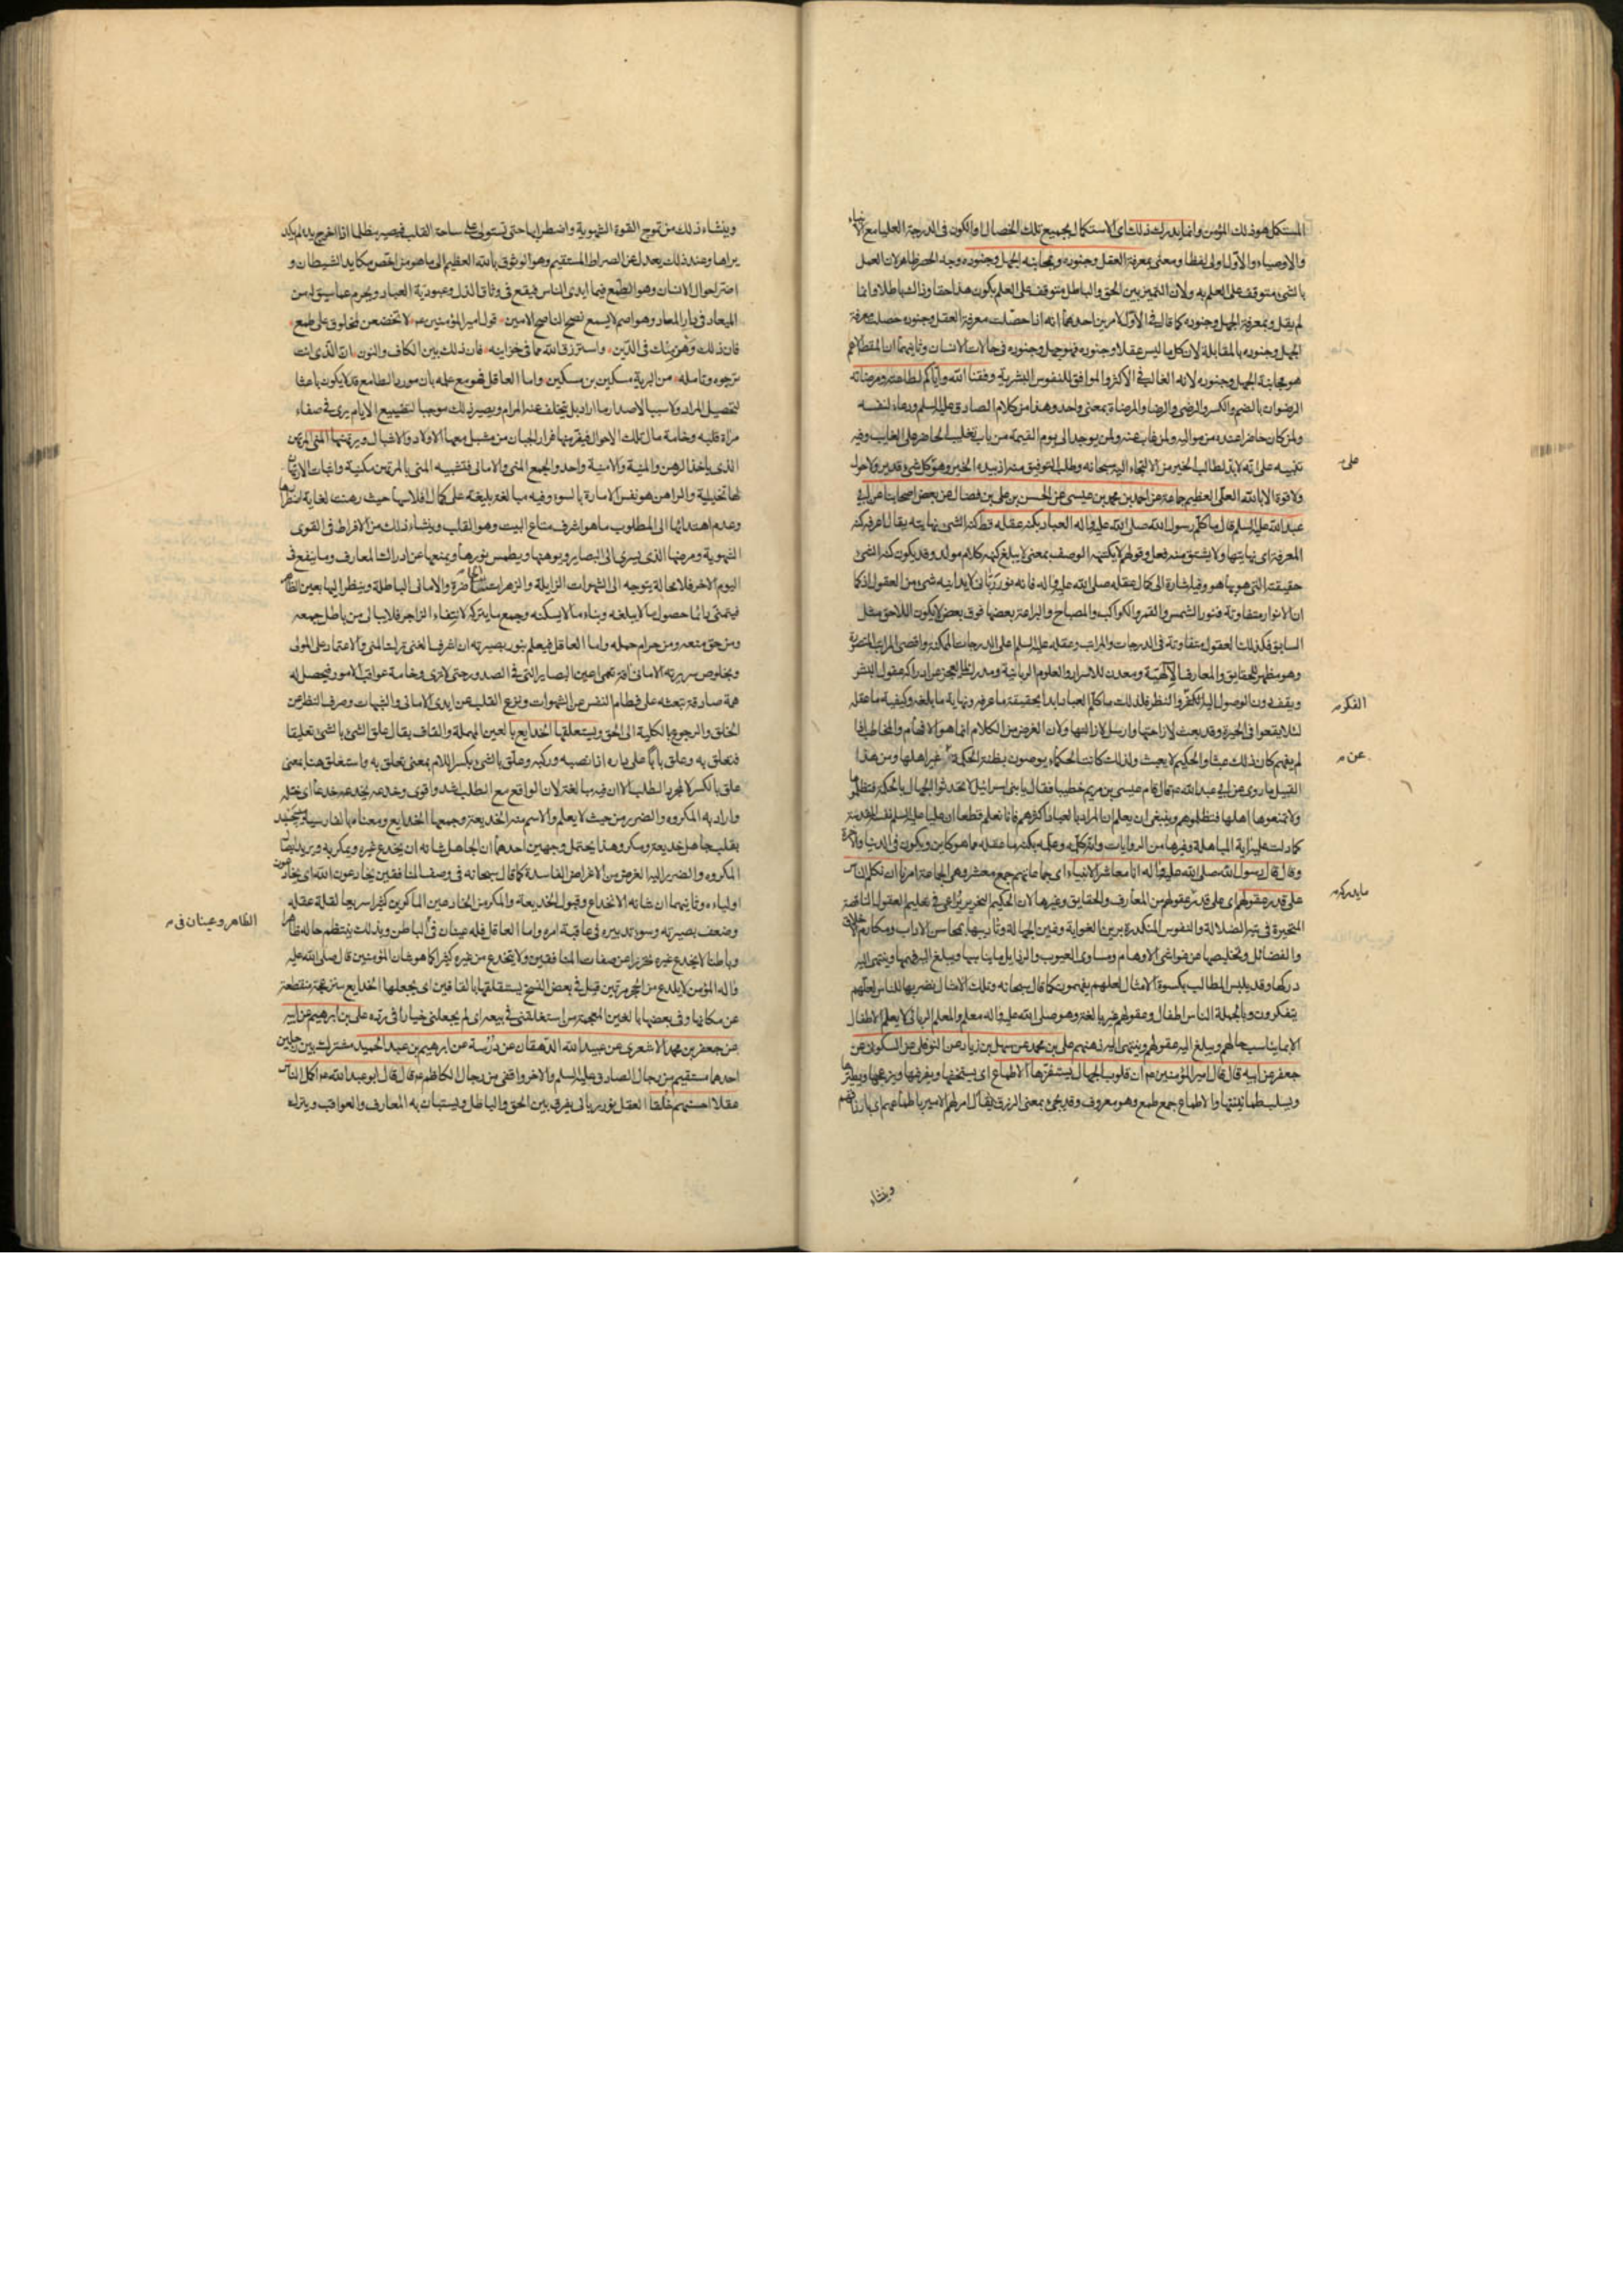 المستكمل هو ذلك المؤمن وانما يدرك ذلك اى الاستكمال بجميع تلك الخصال او الكون فى الدرجة العليا مع الانبياء
والاوصياء والاول اولى لفظا ومعنى بمعرفة العقل وجنوده ومجانبة الجهل وجنوده وجه الحصر ظاهر لان العمل
بالشئ متوقف على العلم به ولان التميز بين الحق والباطل متوقف على العلم بكون هذا حقا وذاك باطلا وانما
لم يقل وبمعرفة الجهل وجنوده كما قال فى الاول لامرين احدهما انه اذا حصلت معرفة العقل وجنوده حصلت معرفة
الجهل وجنوده بالمقابلة لان كل ما ليس عقلا وجنوده فهو جهل وجنوده فى حالات الانسان وثانيهما ان المقصد الاهم
هو مجانبة الجهل وجنوده لانه الغالب فى الاكثر والموافق للنفوس البشرية وفقنا الله واياكم لطاعته ومرضاته
الرضوان بالضم والكسر والرضى والرضا والمرضاة بمعنى واحد وهذا من كلام الصادق عليه السلم ودعاء لنفسه
ولمن كان حاضرا عنده من مواليه ولمن غاب عنه ولمن يوجد الى يوم القيمة من باب تغليب الحاضر على الغايب وفيه
تنبيه على انه لا بد لطالب الخير من الالتجاء اليه سبحانه وطلب التوفيق منه اذ بيده الخير وهو على كل شئ قدير ولا حول
ولا قوة الا بالله العلى العظيم جماعة عن احمد بن محمد بن عيسى عن الحسن بن على بن فضال عن بعض اصحابنا عن ابى
عبد الله عليه السلم قال ما كلم رسول الله صلى الله عليه واله العباد بكنه عقله قط كنه الشئ نهايته يقال اعرفه كنه
المعرفة اى نهايتها ولا يشتق منه فعل وقولهم لا يكتنهه الوصف بمعنى لا يبلغ كنهه كلام مولد وقد يكون كنه الشئ
حقيقته التى هو بها هو وفيه اشارة الى كمال عقله صلى الله عليه واله فانه نور ربانى لا يدانيه شئ من العقول اذ كما
ان الانوار متفاوتة فنور الشمس والقمر والكواكب والمصباح واليراعة بعضها فوق بعض لا يكون اللاحق مثل
السابق فكذلك العقول متفاوتة فى الدرجات والمراتب وعقله عليه السلم على الدرجات الممكنة واقصى المراتب المتصورة
وهو مظهر للحقايق والمعارف الالهية ومعدن للاسرار والعلوم الربانية
ويقف دون الوصول اليه الفكر والنظر فلذلك ما كلم العباد ابدا بحقيقة ما عرفه ونهاية ما بلغه وكيفية ما عقله
لئلا يقعوا فى الحيرة وقد بعث لازاحتها وارسل لازالتها ولان الغرض من الكلام انما هو الافهام والمخاطب اذا
لم يفهم كان ذلك عبثا والحكيم لا يعبث ولذلك كانت الحكماء يوصون بحفظ الحكمة عن غير اهلها ومن هذا
القبيل ما روى عن ابى عبد الله عم قال قام عيسى بن مريم خطيبا فقال يا بنى اسرائيل لا تحدثوا الجهال بالحكمة فتظلموها
ولا تمنعوها اهلها فتظلموهم وينبغى ان يعلم ان المراد بالعباد اكثرهم فانا نعلم قطعا ان عليا عليه السلم
كما دلت عليه اية المباهلة وغيرها من الروايات وانه كلمه وعلمه بكنه ما عقله مما هو كاين ويكون فى الدنيا والاخرة
وقال قال رسول الله صلى الله عليه واله انا معاشر الانبياء اى جماعاتهم جمع معشر وهى الجماعة امرنا ان نكلم الناس
على قدر عقولهم اى على قدر ما يدركه عقولهم من المعارف والحقايق وغيرها لان الحكيم النحرير يراعى فى تعليم العقول الناقصة
المتحيرة فى تيه الضلالة والنفوس المتكدرة برين الغواية وغين الجهالة وتأديبها بمحاسن الاداب ومكارم الاخلاق
والفضائل وتخليصها عن غواشى الاوهام ومساوى العيوب والرذايل ما يناسبها ويبلغ اليه فهمها وينتهى اليه
دركها وقد يلبس المطالب بكسوة الامثال لعلهم يفهمون كما قال سبحانه وتلك الامثال نضربها للناس لعلهم
يتفكرون وبالجملة الناس اطفال وعقولهم غير بالغة وهو صلى الله عليه واله معلم والمعلم الربانى لا يعلم الاطفال
الا بما يناسب حالهم ويبلغ اليه عقولهم وينتهى اليه ذهنهم على بن محمد عن سهل بن زياد عن النوفلى عن السكونى عن
جعفر عن ابيه قال قال امير المؤمنين عم ان قلوب الجهال يستفزها الاطماع اى يستخفها ويفرقها ويزعجها ويطيرها
ويسلب طمانينتها والاطماع جمع طمع وهو معروف وقد يجئ بمعنى الرزق يقال امر لهم الامير باطماعهم اى بارزاقهم
وينشاء
على
الفكر
عن
ما يدركه
وينشاء ذلك من تموج القوة الشهوية واضطرابها حتى تستولى على ساحة القلب فيصير مظلما اذا اخرج يده لم يكد
يراها وعند ذلك يعدل عن الصراط المستقيم وهو الوثوق بالله العظيم الى ما هو من اخص مكايد الشيطان و
اخس احوال الانسان وهو الطمع فيما ايدى الناس فيقع فى وثاق الذل وعبودية العباد ويحرم عما سبق له من
الميعاد فى دار المعاد وهو اصم لا يسمع نصح الناصح الامين قول امير المؤمنين عم لا تخضعن لمخلوق على طمع
فان ذلك وهن منك فى الدين واسترزق الله مما فى خزاينه فان ذلك بين الكاف والنون ان الذى انت
ترجوه وتأمله من البرية مسكين بن مسكين واما العاقل فهو مع علمه بان مورد الطامع قد لا يكون باعثا
لتحصيل المراد ولا سببا لاصدار ما اراد بل يتخلف عنه المرام ويصير ذلك موجبا لتضييع الايام يرى فى صفاء
مراة قلبه وخامة مال تلك الاحوال فيفر منها فرار الجبان من مشبل معها الاولاد والاشبال ويرتهنها المنى المرتهن
الذى ياخذ الرهن والمنية والامنية واحد والجمع المنى والامانى فتشبيه المنى بالمرتهن مكنية واثبات الارتهان
لها تخييلية والراهن هو نفس الامارة بالسوء وفيه مبالغة بليغة على كمال افلاسها حيث رهنت لغاية اضطرارها
وعدم اهتدائها الى المطلوب ما هو اشرف متاع البيت وهو القلب وينشاء ذلك من الافراط فى القوى
الشهوية ومرضها الذى يسرى الى البصاير ويوهنها ويطمس نورها ويمنعها عن ادراك المعارف وما ينفع فى
اليوم الاخر فلا محالة يتوجه الى الشهوات الزايلة والزهرات الحاضرة والامانى الباطلة وينظر اليها بعين الظاهر
فيتمنى دائما حصول ما لا يبلغه وبناء ما لا يسكنه وجمع ما يتركه لانتفاء الزاجر فلا يبالى من باطل جمعه
ومن حق منعه ومن حرام حمله واما العاقل فيعلم بنور بصيرته ان اشرف الغنى ترك المنى والاعتماد على المولى
وبخلوص سريرته الامانى افة تعمى اعين البصاير التى فى الصدور حتى لا ترى وخامة عواقب الامور فيحصل له
همة صادقة تبعثه على فطام النفس عن الشهوات ونزع القلب عن ايدى الامانى والشبهات وصرف النظر عن
الخلق والرجوع بالكلية الى الحق ويستعلقها الخدايع بالعين المهملة والقاف يقال علق الشئ بالشئ تعليقا
فتعلق به وعلق بابا على داره اذا نصبه وركبه وعلق بالشئ بكسر اللام بمعنى تعلق به واستعلق هنا بمعنى
علق بالكسر لا لمجرد الطلب الا ان فيه مبالغة لان الواقع مع الطلب اشد واقوى وخدعه يخدعه خدعا اى ختله
واراد به المكروه والضرر من حيث لا يعلم والاسم منه الخديعة وجمعها الخدايع ومعناه بالفارسية
بقلب جاهل خديعه ومكر وهذا يحتمل وجهين احدهما ان الجاهل شانه ان يخدع غيره ويمكر به ويريد ايصال
المكروه والضرر اليه لغرض من الاغراض الفاسدة كما قال سبحانه فى وصف المنافقين يخادعون الله اى يخادعون
اولياءه وثانيهما ان شانه الانخداع وقبول الخديعة والمكر من الخادعين الماكرين كثيرا سريعا لقلة عقله
وضعف بصيرته وسوء تدبيره فى عاقبة امره واما العاقل فله عينان فى الباطن وبذلك ينتظم حاله ظاهرا
وباطنا لا يخدع غيره تحرزا عن صفات المنافقين ولا يتخدع من غيره كثيرا كما هو شان المؤمنين قال صلى الله عليه
واله المؤمن لا يلدغ من الجحر مرتين قيل فى بعض النسخ يستقلقها بالقافين اى يجعلها الخدايع منزعجة منقطعة
عن مكانها وفى بعضها بالغين المعجمة من استغلقنى فى بيعه اى لم يجعلنى خيارا فى رده على بن ابرهيم عن ابيه
عن جعفر بن محمد الاشعرى عن عبيد الله الدهقان عن درسة عن ابرهيم بن عبد الحميد مشترك بين رجلين
احدهما مستقيم من رجال الصادق عليه السلم والاخر واقفى من رجال الكاظم عم قال قال ابو عبد الله عم اكمل الناس
عقلا احسنهم خلقا العقل نور ربانى يفرق بين الحق والباطل ويستبان به المعارف والعواقب ويترك
الظاهر وعينان فى